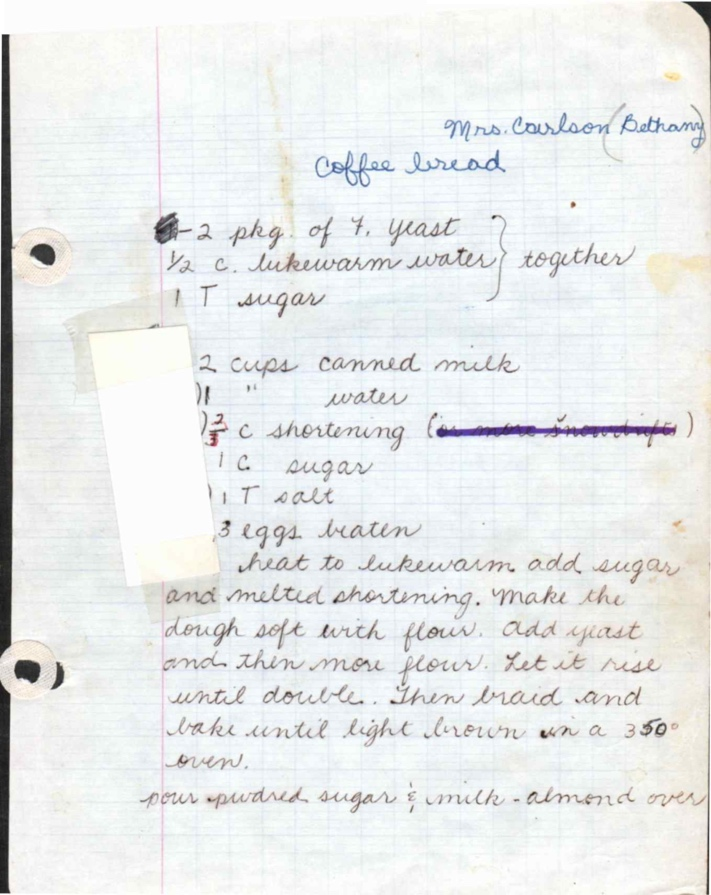 Mrs. Carlson (Bethany)
Coffee bread
2 pkg. of F. yeast
1/2 c. lukewarm water } together
1 T sugar
2 cups canned milk
)1 " water
)2/3 c shortening (or more snowdrift)
1 C. sugar
)1 T salt
3 eggs beaten
heat to lukewarm add sugar
and melted shortening. Make the
dough soft with flour. Add yeast
and then more flour. Let it rise
until double. Then braid and
bake until light brown in a 350°
oven.
pour pwdred sugar & milk - almond over